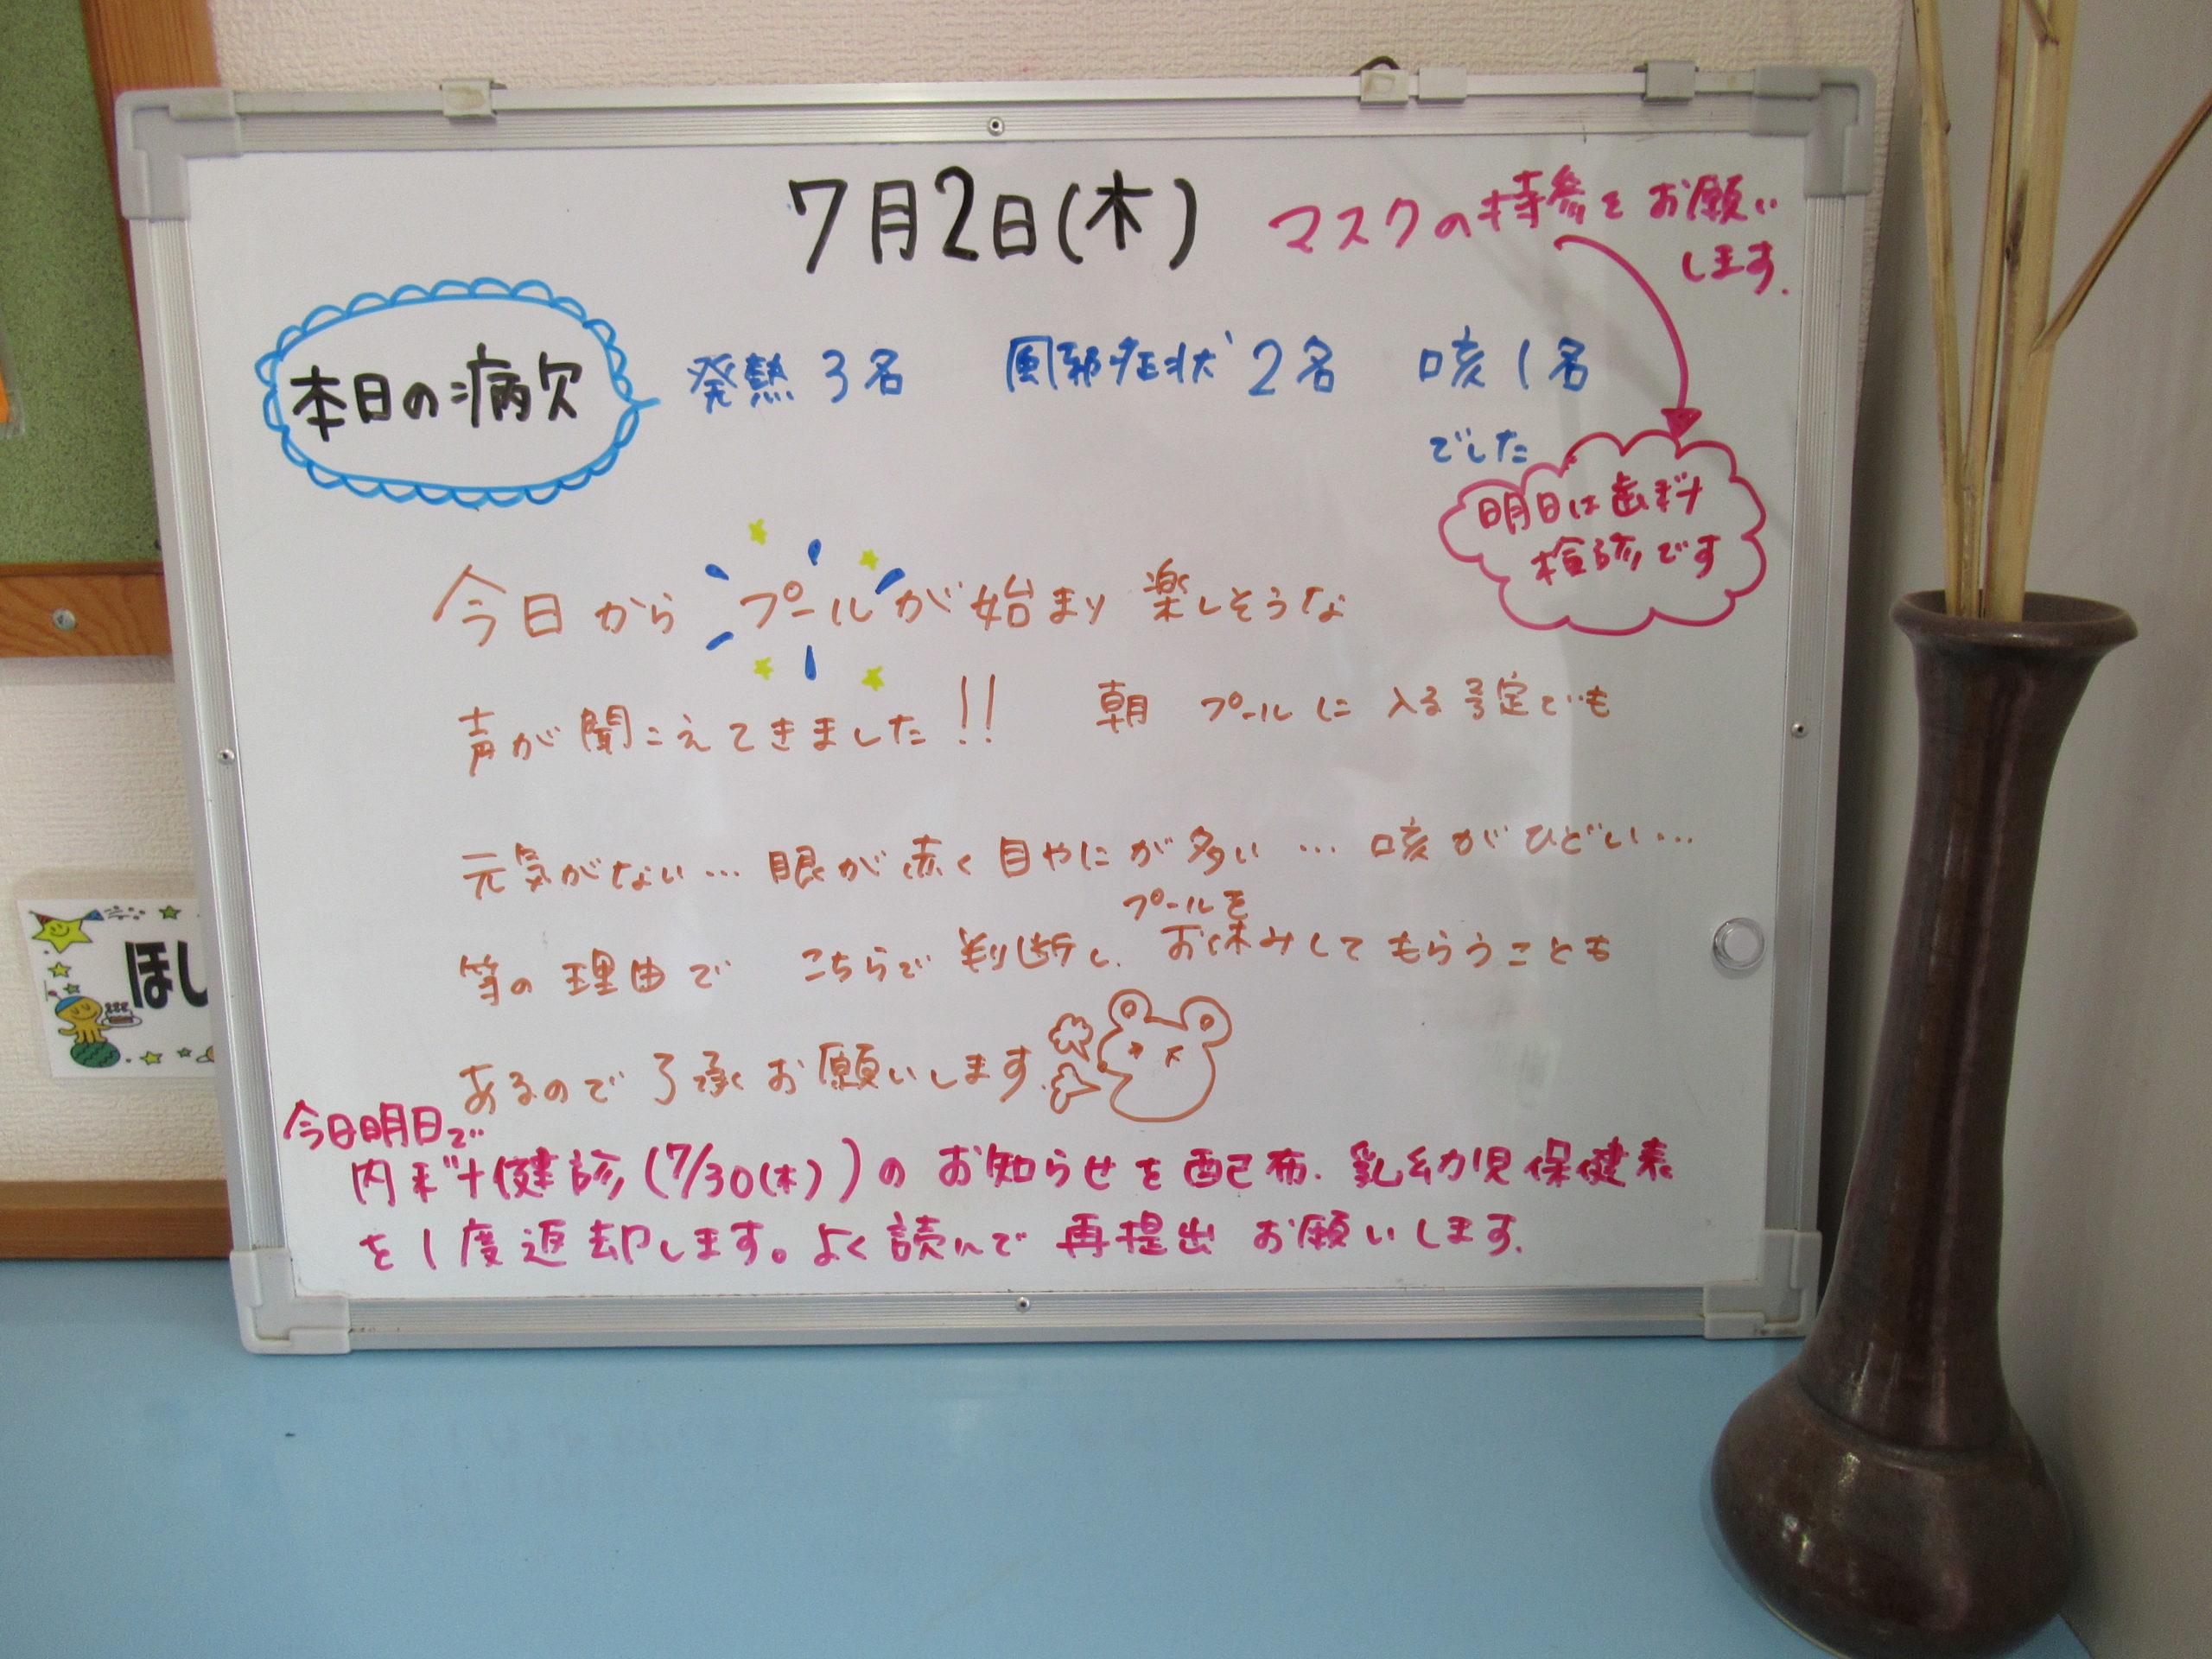 7月2日(木)
マスクの持参をお願い
します.
本日の病欠
発熱 3名 風邪症状 2名 咳 1名
でした
明日は歯ギ
検診です
今日から プールが始まり 楽しそうな
声が聞こえてきました!! 朝 プールに 入る予定でも
元気がない… 眼が赤く目やにが多い … 咳がひどい…
等の 理由で こちらで 判断し、 プールを
お休みして もらうことも
あるので 了承お願いします.
今日明日で
内科健診 (7/30(木))の お知らせを 配布. 乳幼児保健表
を1度返却します。よく読んで 再提出 お願いします.
ほし